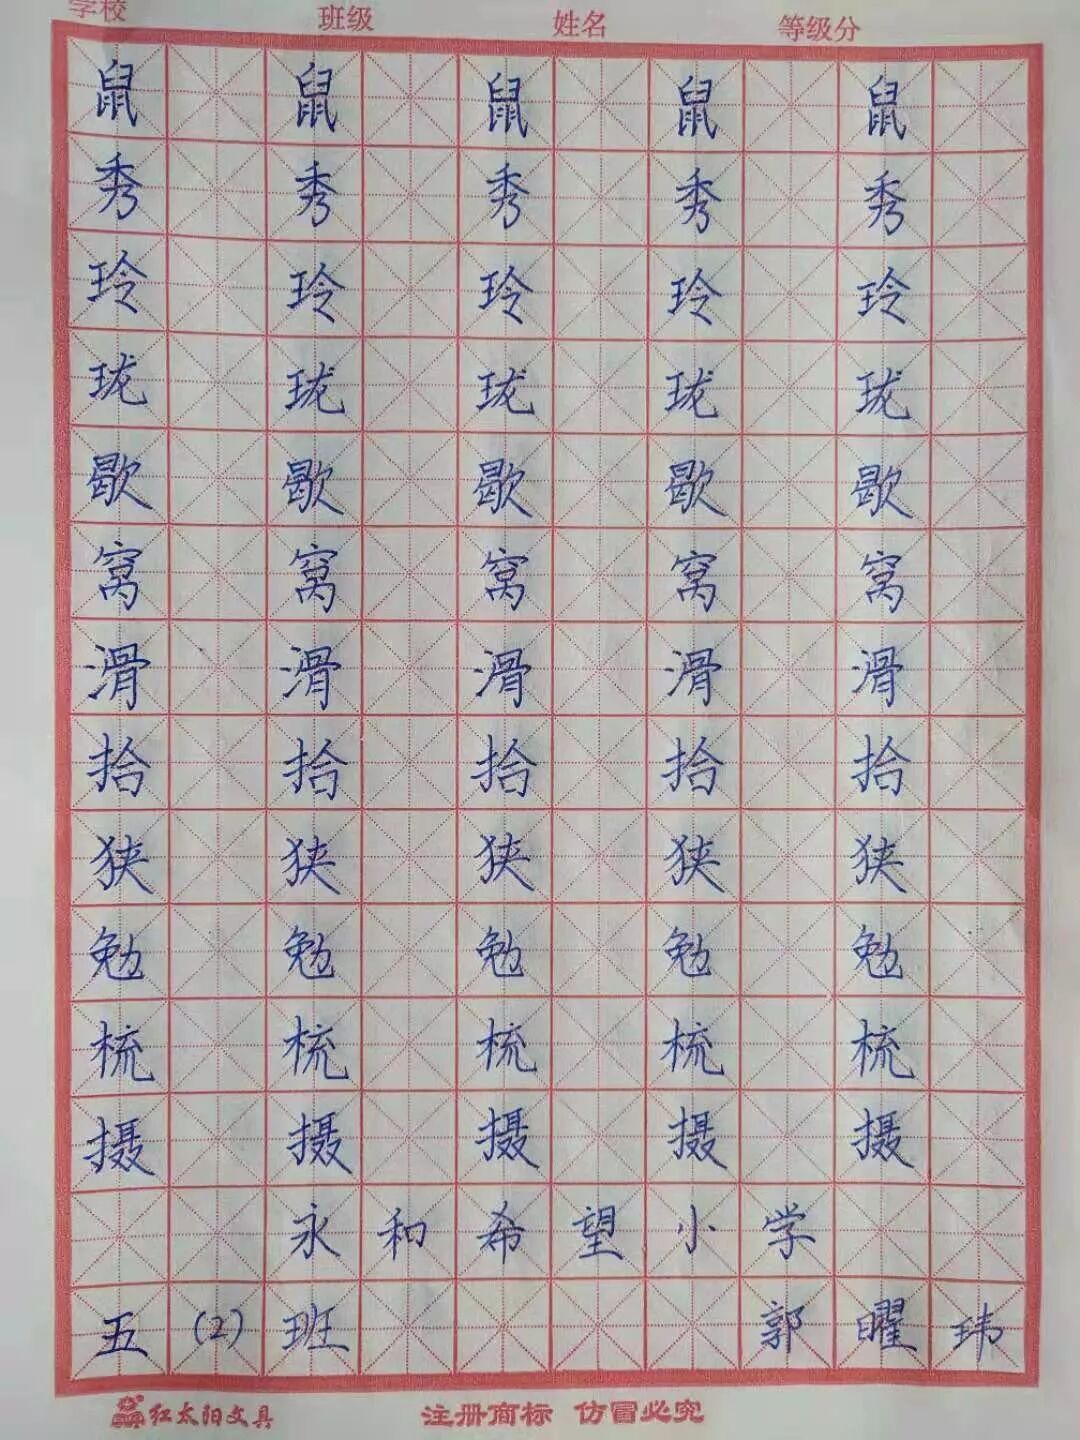 学校 班级 姓名 等级分
鼠 鼠 鼠 鼠 鼠
秀 秀 秀 秀 秀
玲 玲 玲 玲 玲
珑 珑 珑 珑 珑
歇 歇 歇 歇 歇
窝 窝 窝 窝 窝
滑 滑 滑 滑 滑
拾 拾 拾 拾 拾
狭 狭 狭 狭 狭
勉 勉 勉 勉 勉
梳 梳 梳 梳 梳
摄 摄 摄 摄 摄
永 和 希 望 小 学
五 (2) 班 郭 曜 玮
红太阳文具 注册商标 仿冒必究